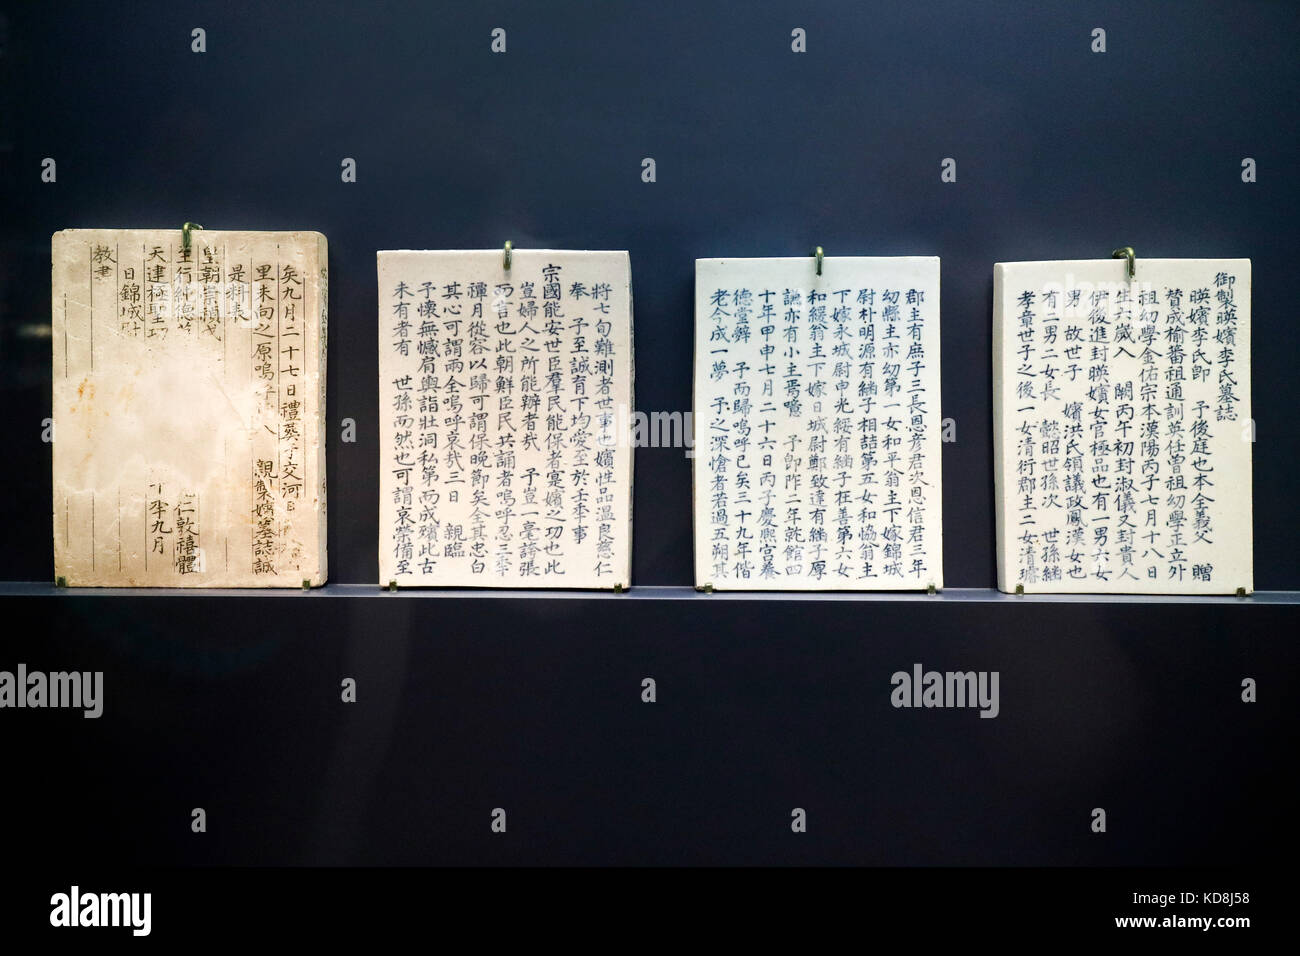 御製暎嬪李氏墓誌
暎嬪李氏卽 予後庭也本全義父 贈
贊成榆蕃祖通訓英任曾祖幼學正立外
祖幼學金佑宗本漢陽丙子七月十八日
生六歲入 闕丙午初封淑儀又封貴人
伊後進封暎嬪女官極品也有一男六女
男 故世子 嬪洪氏領議政鳳漢女也
有二男二女長 懿昭世孫次 世孫繼
孝章世子之後一女清衍郡主二女清璿
郡主有庶子三長恩彦君次恩信君三年
幼縣主亦幼第一女和平翁主下嫁錦城
尉朴明源有繼子相喆第五女和協翁主
下嫁永城尉申光綏有繼子在善第六女
和緩翁主下嫁日城尉鄭致達有繼子厚
謙亦有小主焉噫 予卽阼二年就館四
十年甲申七月二十六日丙子慶熙宮養
德堂辭 予而歸嗚呼已矣三十九年偕
老今成一夢 予之深愴者若過五朔其
將七旬難測者世事也嬪性品溫良慈仁
奉 予至誠育下均愛至於壬季事
宗國能安世臣羣民能保者寔嬪之功也此
豈婦人之所能辦者哉 予豈一毫誇張
而言也此朝鮮臣民共誦者嗚呼忍三季
禫月從容以歸可謂保晚節矣全其忠白
其心可謂兩全嗚呼哀哉三日 親臨
予懷無憾肩輿詣壯洞私第而成殯此古
未有者有 世孫而然也可謂哀榮備至
矣九月二十七日禮葬于交河
里未向之原嗚呼 八 親製嬪墓誌誠
是料表
皇朝崇禎
至行純德 仁敦禧體
天建極聖功 九月
日錦城尉
教書
alamy
Image ID: KD8J58
www.alamy.com